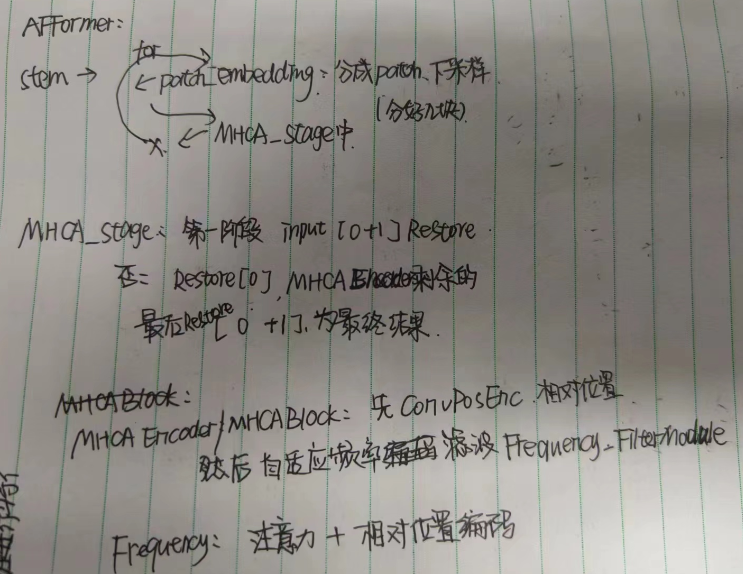 AFFormer:
for
stem → ← patch_embedding: 分成patch、下采样
(分好几块)
x ← MHCA_stage中.
MHCA_stage: 第一阶段 input [0+1] Restore.
否= Restore[0], MHCA Encoder剩余的
最后Restore[0 +1], 为最终结果.
MHCABlock:
MHCA Encoder/MHCABlock: 先ConvPosEnc.相对位置
然后自适应频率滤波Frequency_FilterModule
Frequency: 注意力 + 相对位置编码